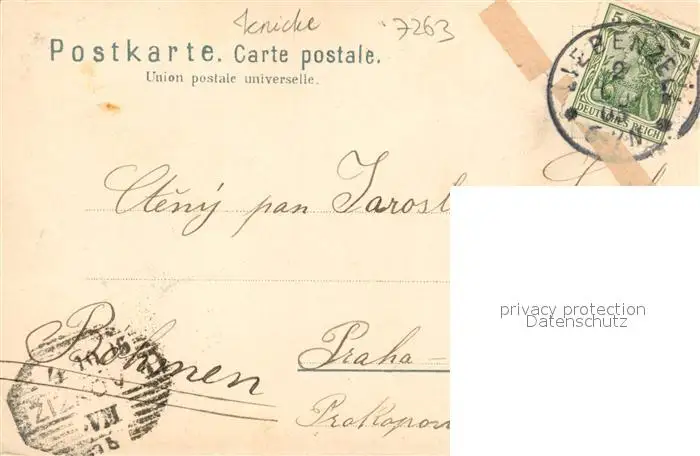 Knicke 7263
Postkarte. Carte postale.
Union postale universelle.
5
LIEBENZELL
2
DEUTSCHES REICH
Ctěný pan Jarosl
privacy protection
Datenschutz
Böhmen
Praha-
ŽIŽKOV
Prokopov